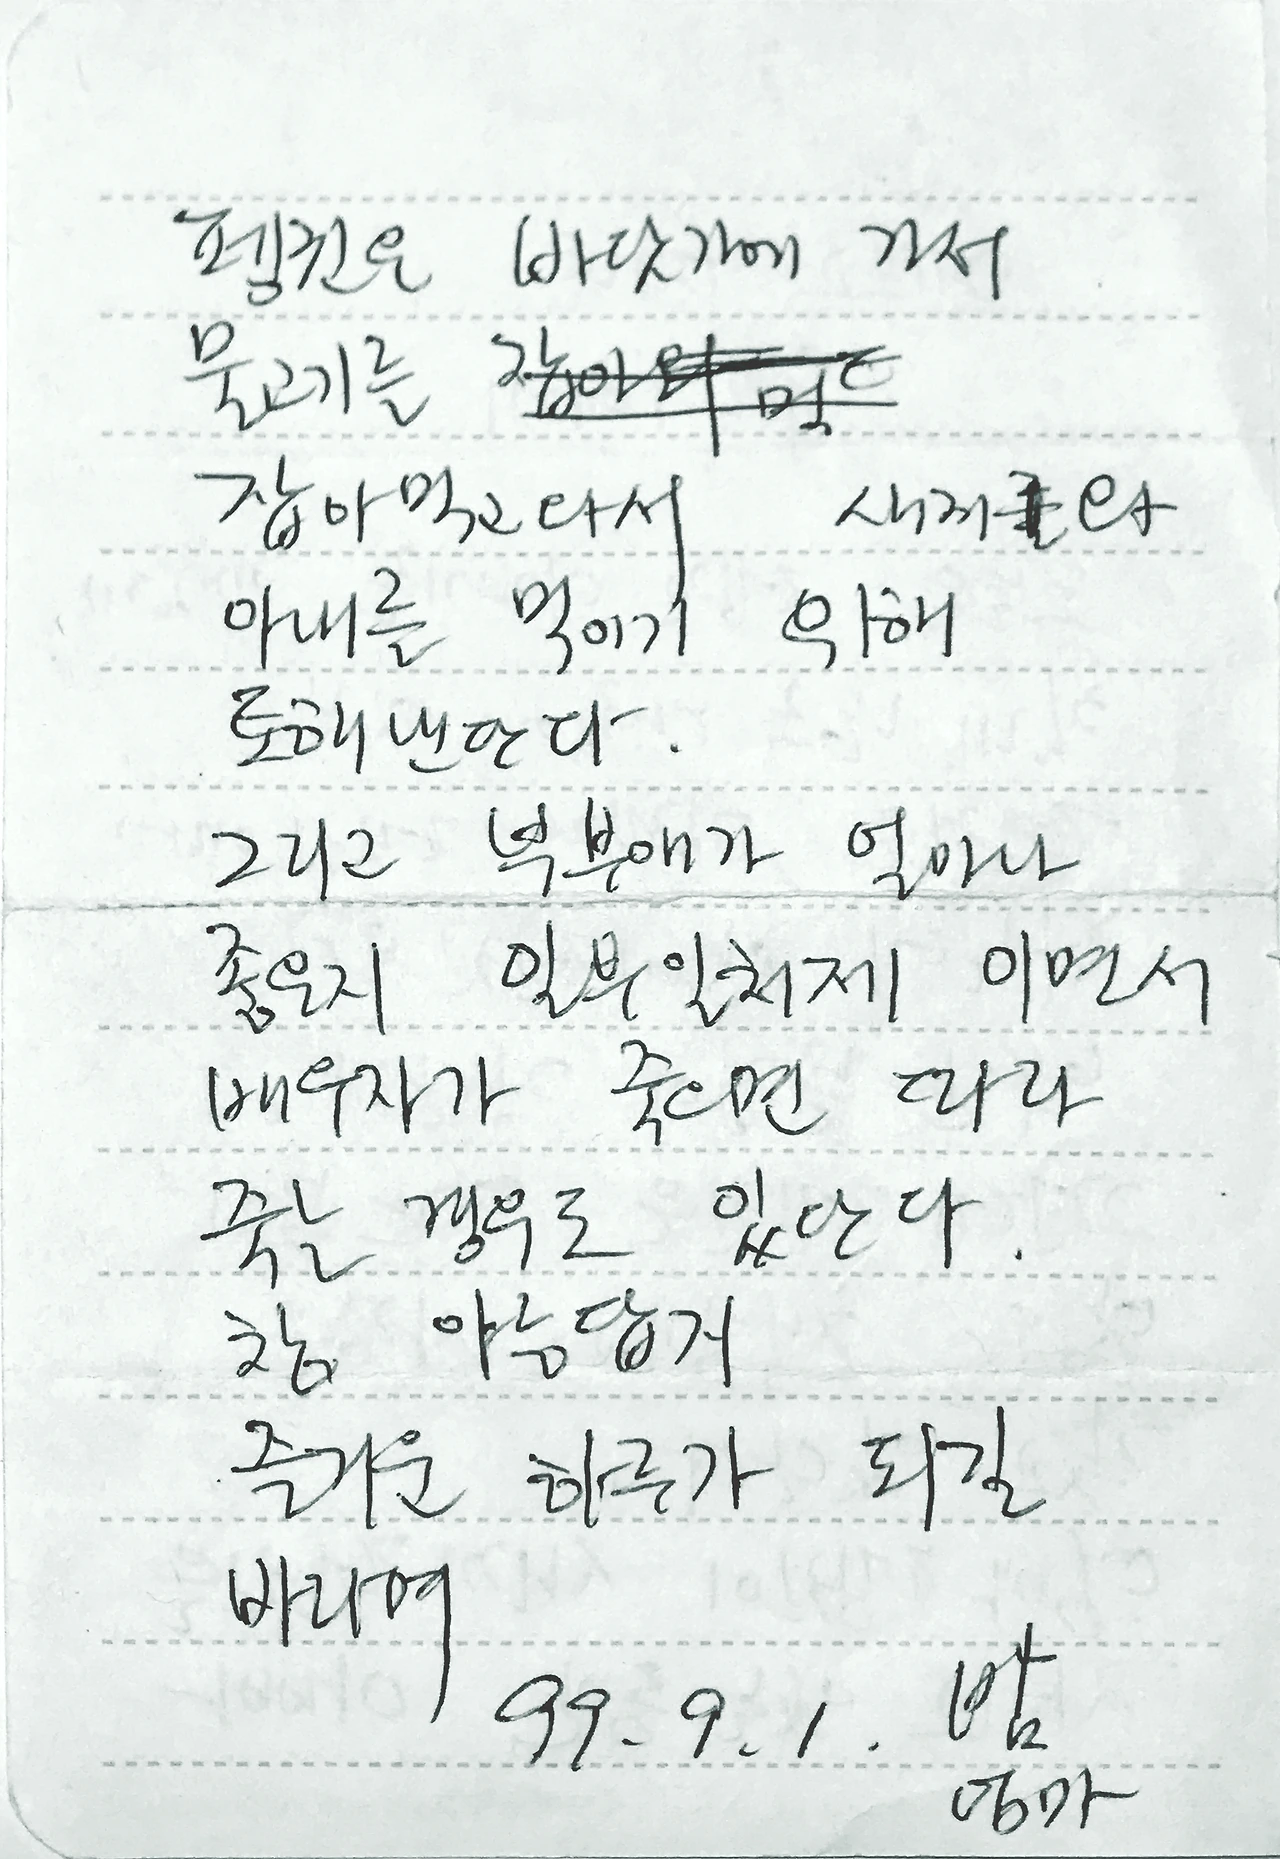 펭귄은 바닷가에 가서
물고기를 잡아 먹
잡아먹고 다시 새끼와
아내를 먹이기 위해
토해 낸단다.
그리고 부부애가 얼마나
좋은지 일부일처제 이면서
배우자가 죽으면 따라
죽는 경우도 있단다.
참 아름답지
즐거운 하루가 되길
바라며
99. 9. 1. 밤
엄마